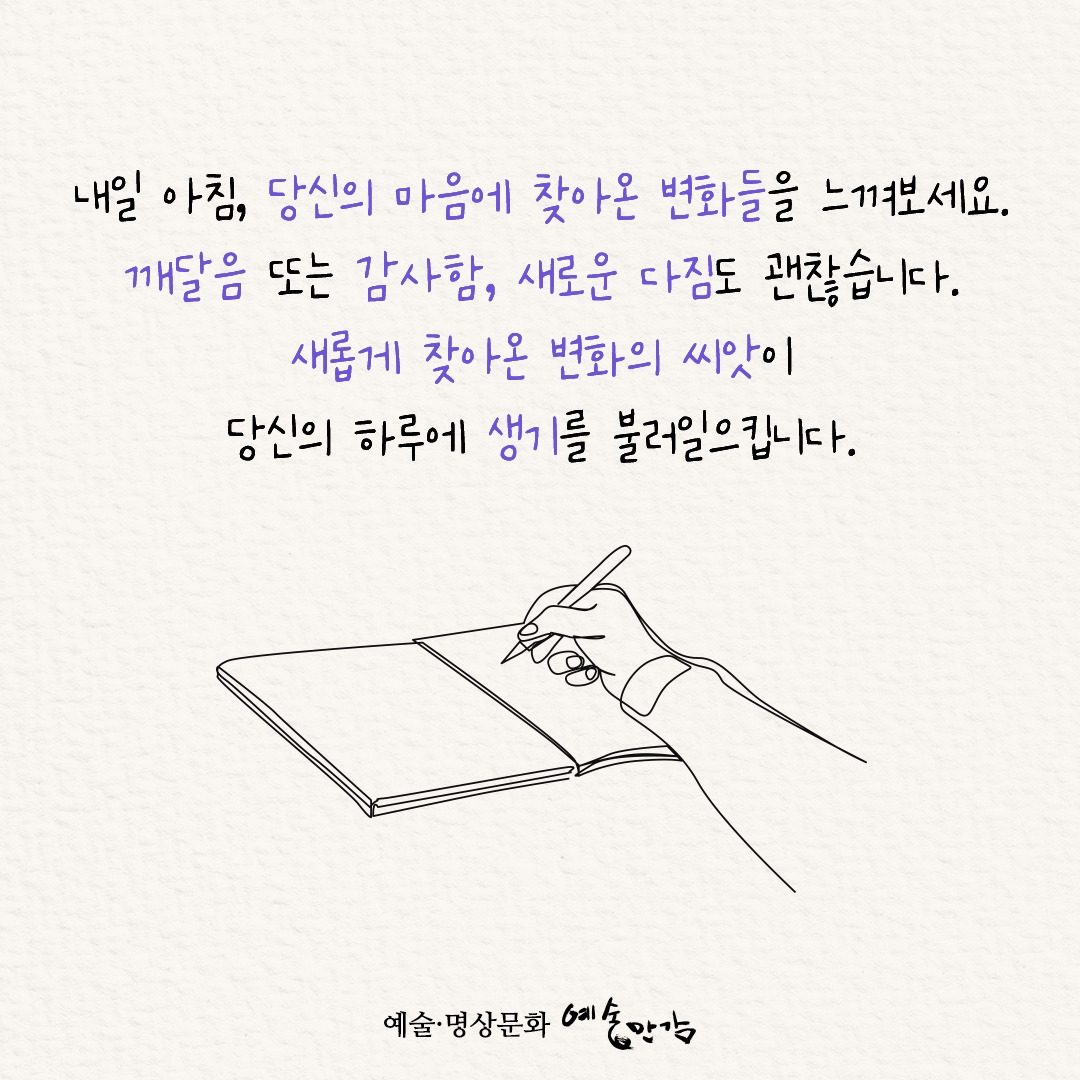 내일 아침, 당신의 마음에 찾아온 변화들을 느껴보세요.
깨달음 또는 감사함, 새로운 다짐도 괜찮습니다.
새롭게 찾아온 변화의 씨앗이
당신의 하루에 생기를 불러일으킵니다.
예술·명상문화 예술만감